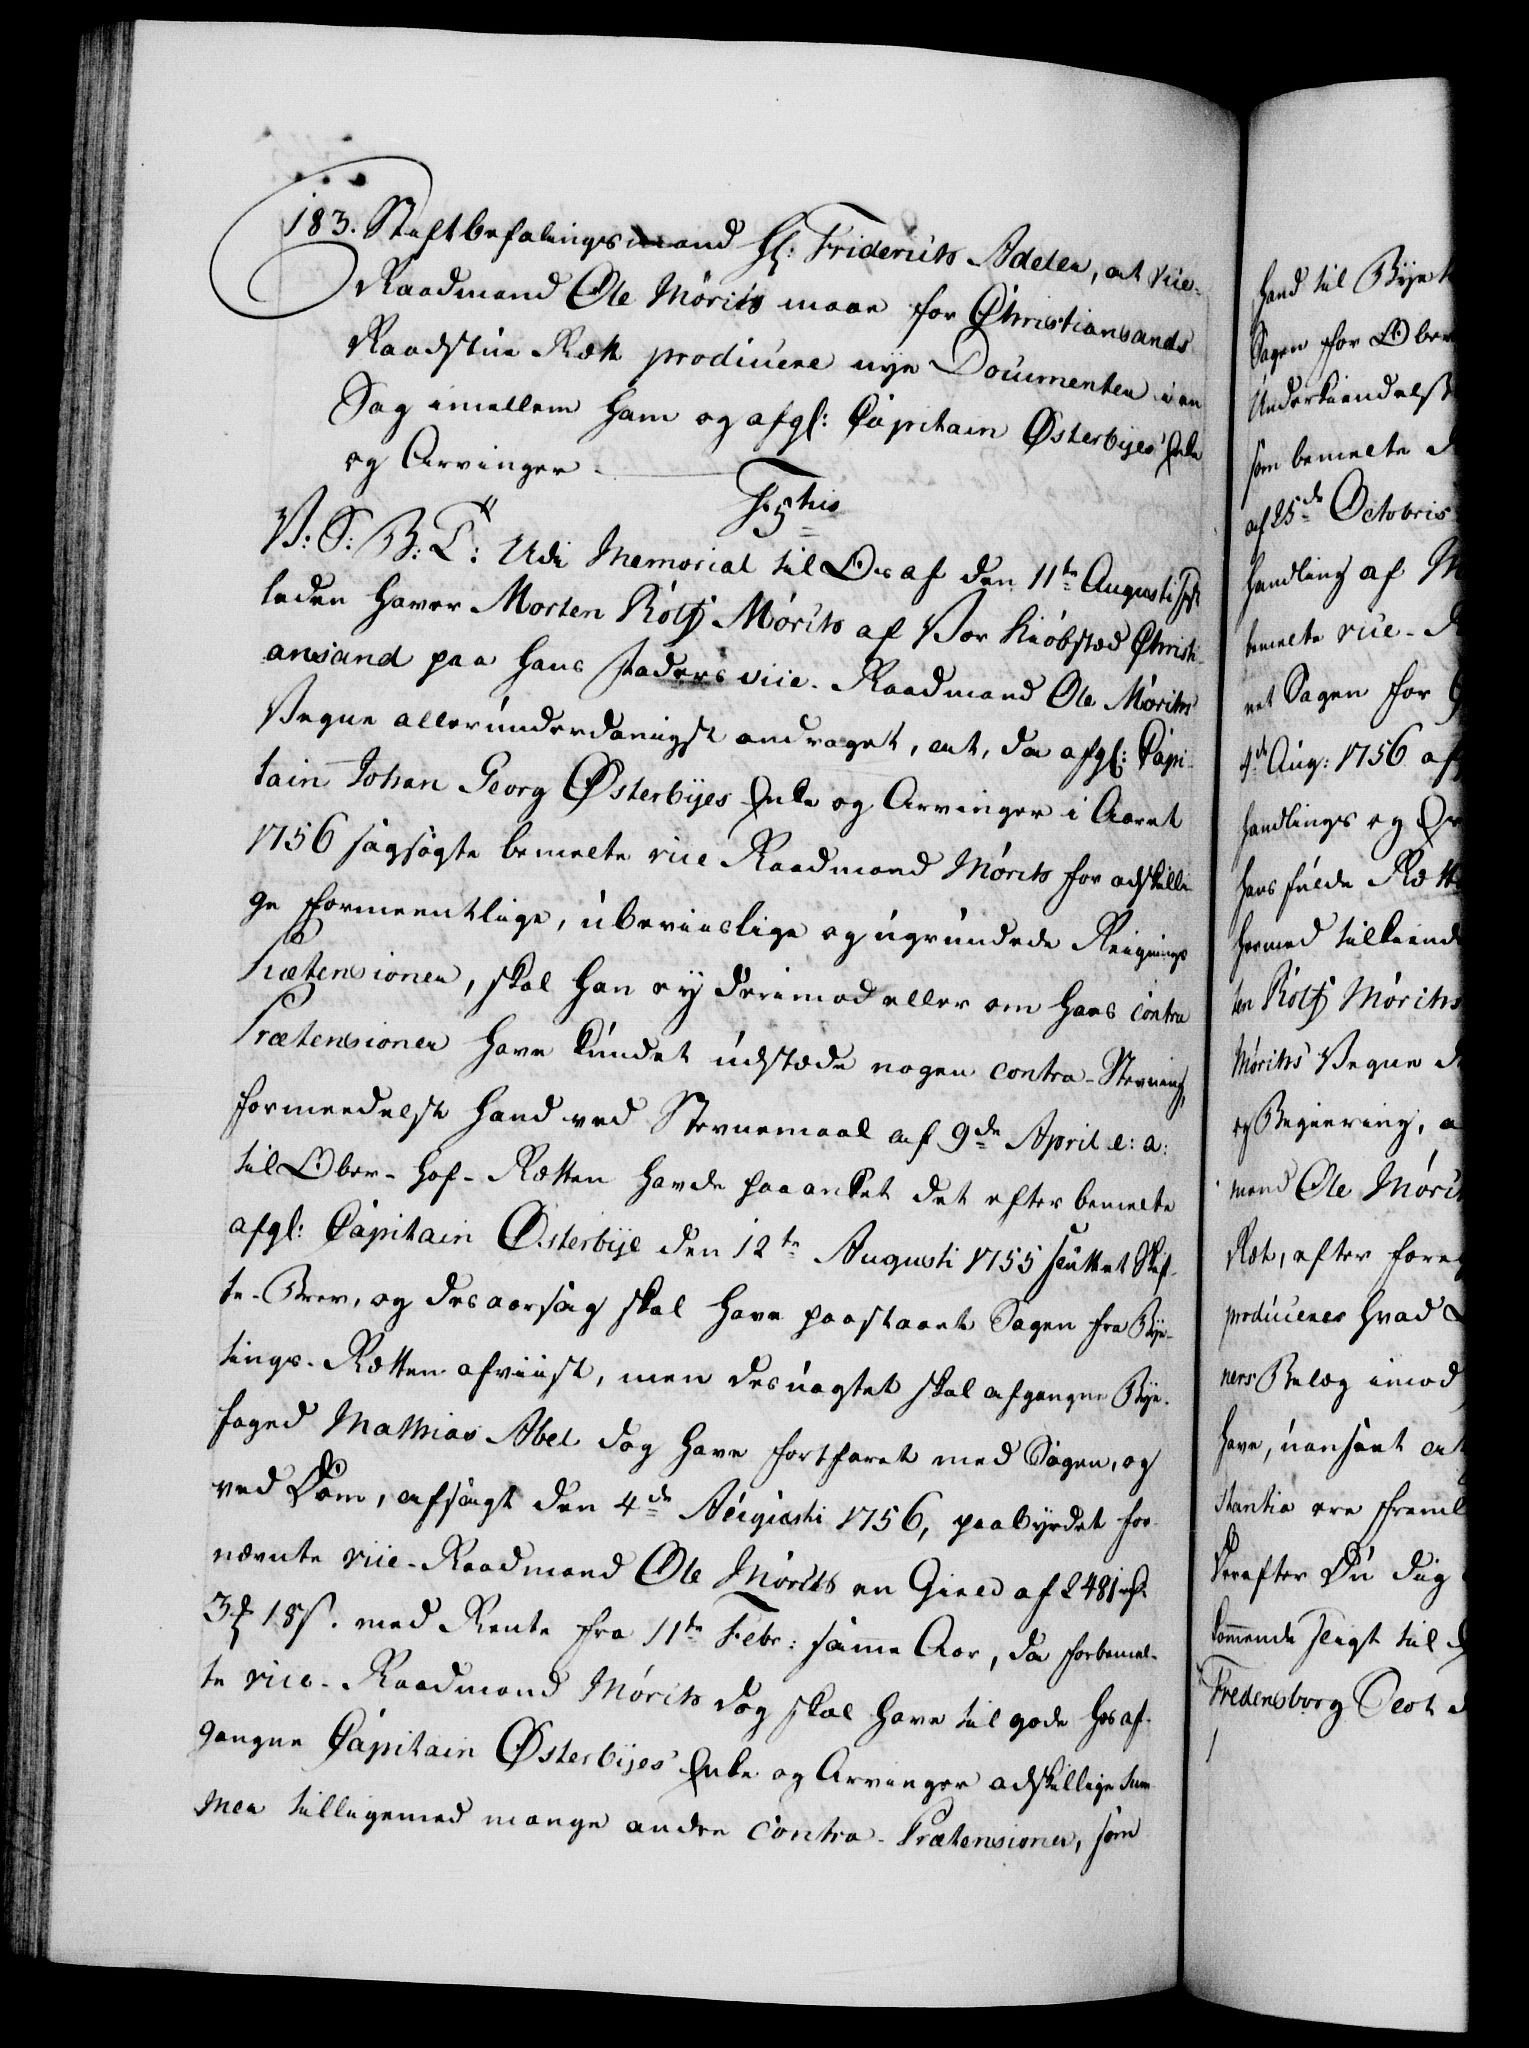 183. Stiftbefalingsmand Hr: Friderich Adeler, at vice-
Raadmand Ole Mórits maae for Christiansands
Raadstue Rætt producere nye Documenter i en
Sag imellem ham og afgl: Capitain Østerbyes Enke
og Arvinger.
F: 5 this
V: S: B: T: Udi Memorial til Os af den 11te Augusti sidst
leden haver Morten Rólf Mórits af Vor Kiøbsted Christi-
ansand paa hans Faders vice-Raadmand Ole Mórits's
Vegne allerunderdanigst andraget, at, da afgl: Capi-
tain Johan Georg Østerbyes Enke og Arvinger i Aaret
1756 sagsøgte bemelte vice Raadmand Mórits for adskilli-
ge formeentlige, ubeviislige og ugrundede Reignings
Prætensioner, skal han ey derimod eller om hans contra
Prætensioner have kundet udstæde nogen contra-Stevning,
formedelst hand ved Stevnemaal af 9de April e: a:
til Ober-Hof-Retten havde paaanket det efter bemelte
afgl: Capitain Østerbye den 12te Augusti 1755 sluttet Skif-
te-Brev, og desaarsag skal have paastaaet Sagen fra Bye-
tings-Rætten afviist, men desuagtet skal afgangne Bye-
foged Mathias Abel dog have fortfaret med Sagen, og
ved Dom, afsagt den 4de Augusti 1756, paabyrdet for-
nævnte vice-Raadmand Ole Mórits en Gield af 2481 rd
3 mk 18 s. med Rente fra 11te Febr: samme Aar, da forbemel-
te vice-Raadmand Mórits dog skal have til gode hos af-
gangne Capitain Østerbyes Enke og Arvinger adskillige Sum-
mer tilligemed mange andre contra-Prætensioner, som
hand til Bye
Sagen for Ober
Underkiendelse
som bemelte
af 25de Octobris
handling af M
bemelte vice-R
vet Sagen for
4de Aug: 1756 af
handlings og
hans fulde Rætt
hermed tilkiende
ten Rólf Mórits
Mórits's Vegne
og Begiering, a
mand Ole Mórit
Ræt, efter foreg
produceres hvad
ners Belæg imod
have, uanseet at
stantia ere freml
Derefter Du dig
kommende sligt til
Fredensborg Slot d